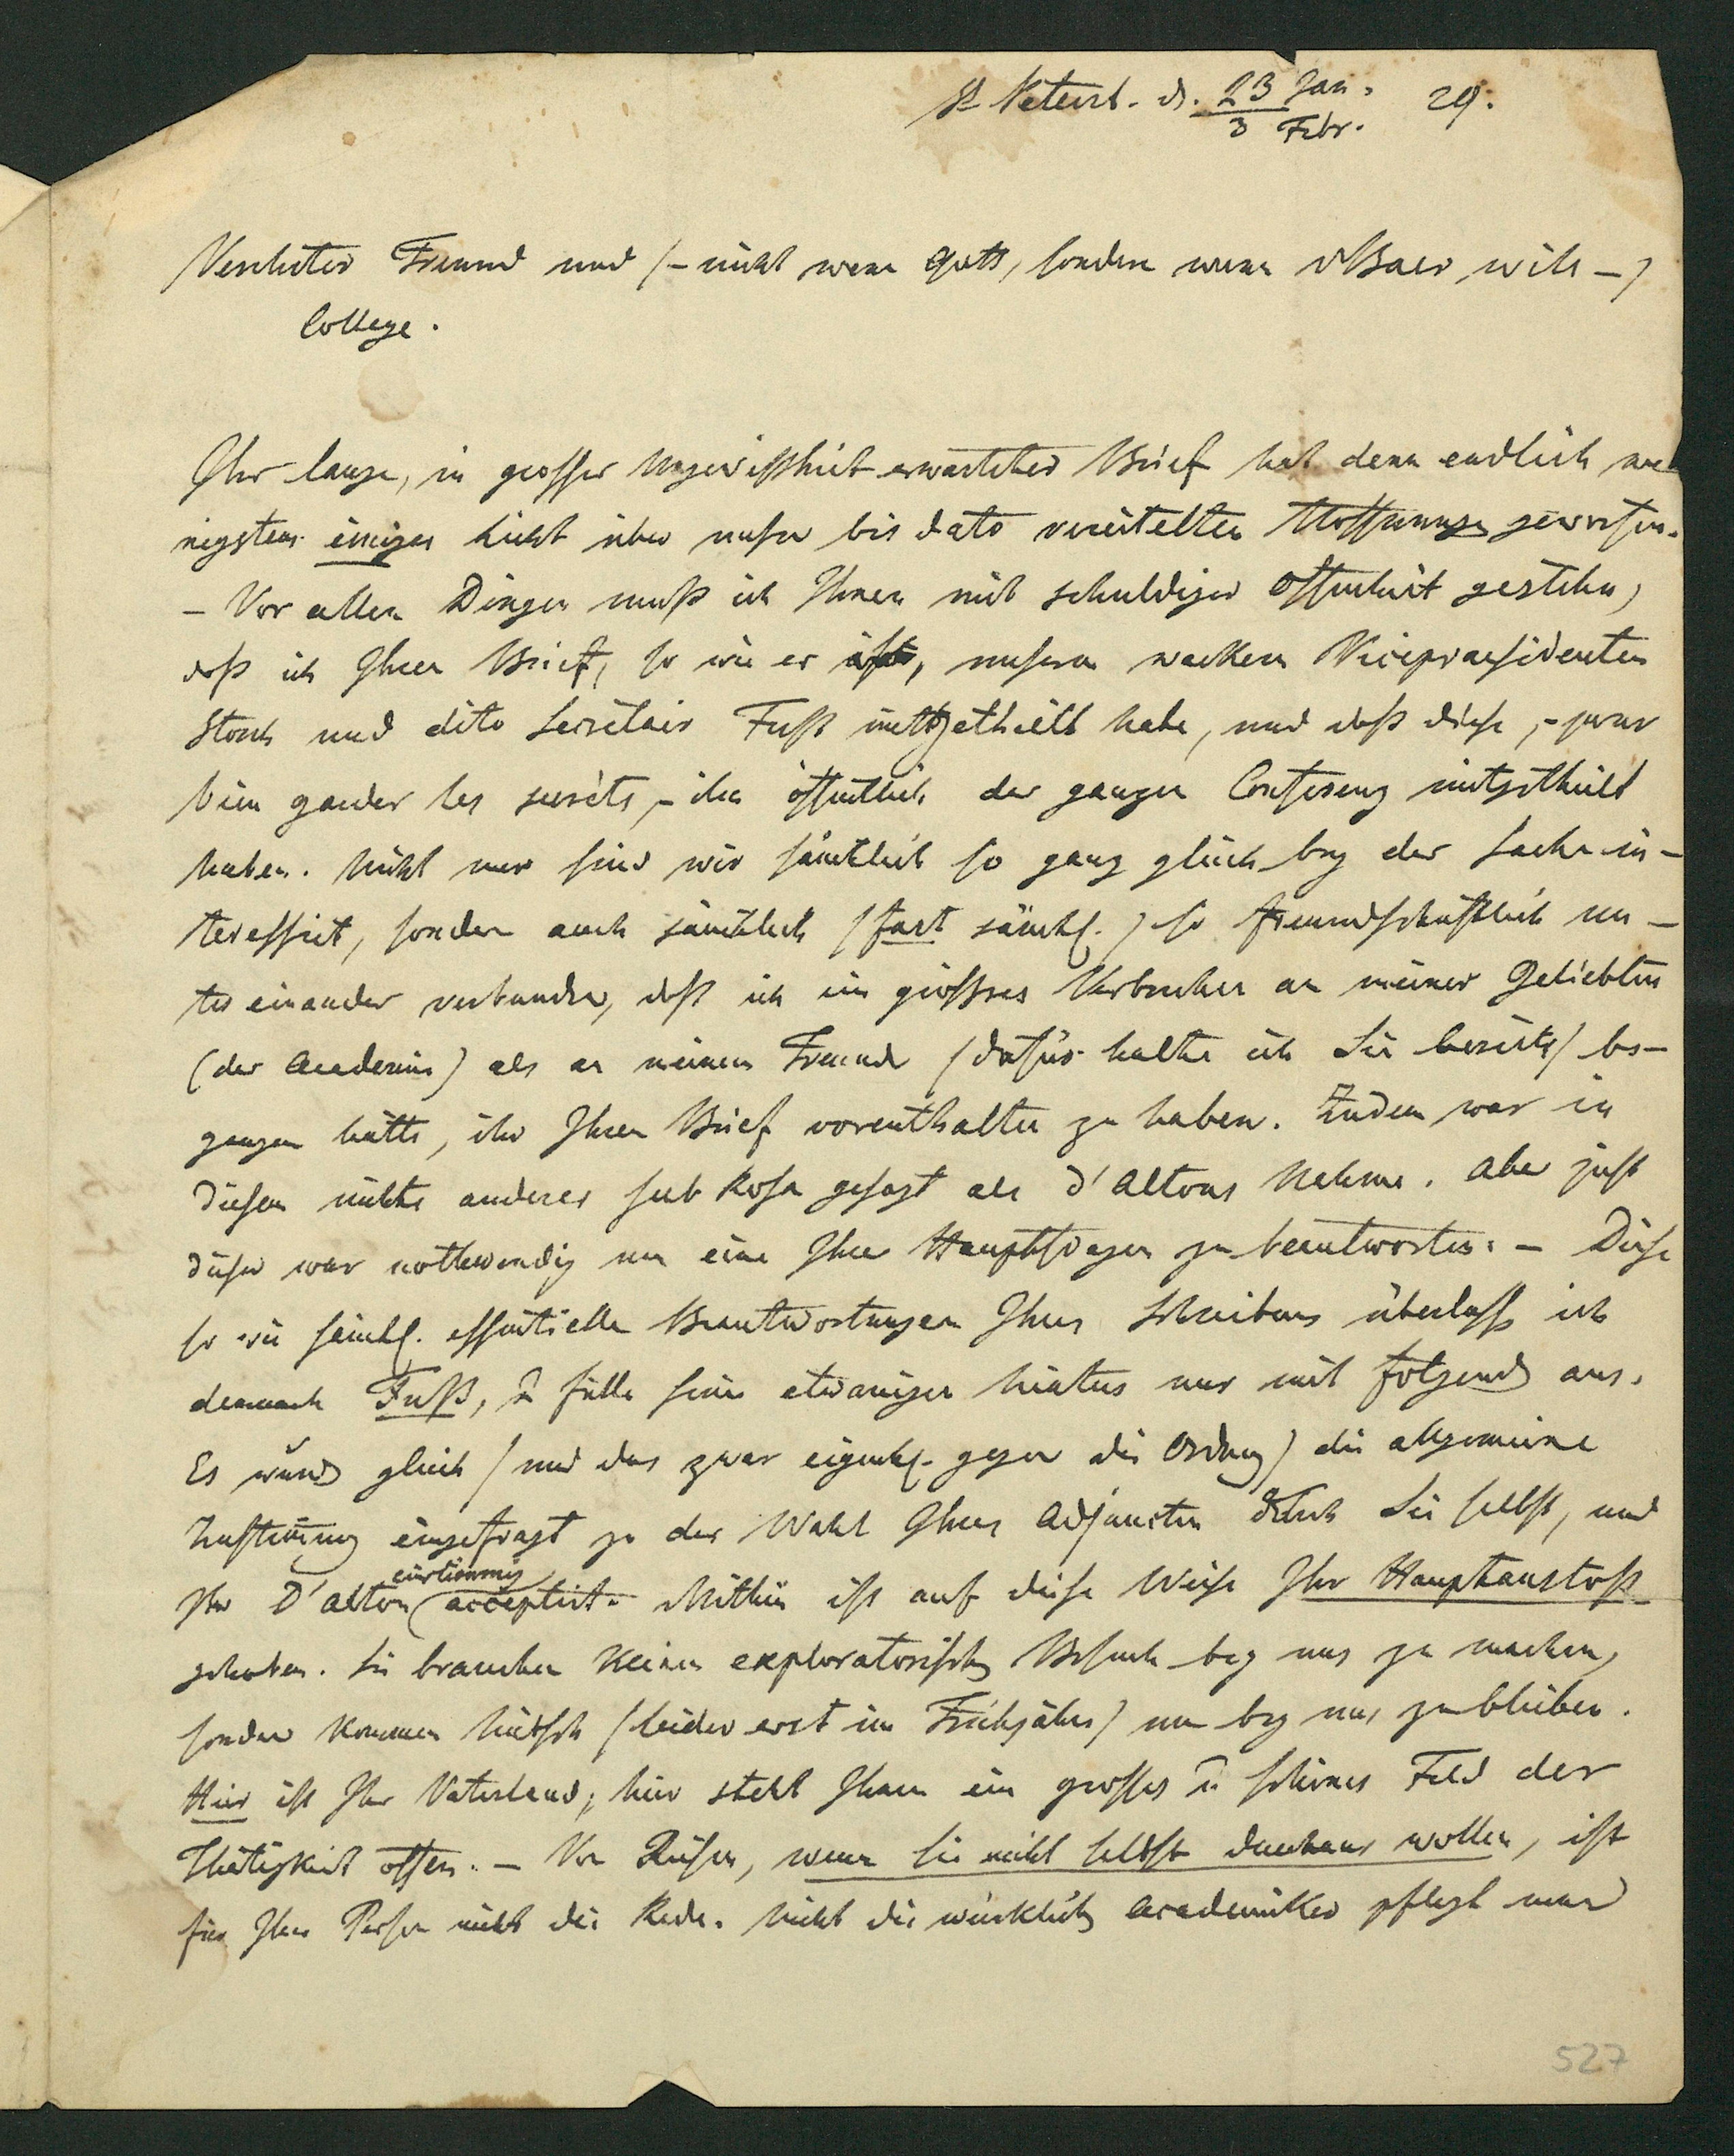 St Petersb. d. 23 Jan. 29.
3 Febr.
Verehrter Freund und (– nicht wenn Gott, sondern wenn Baer will –)
College.
Ihr lange, in grosser Ungewißheit erwarteter Brief hat denn endlich we
nigstens einiges Licht über unsere bis dato vereitelten Hoffnungen geworfen.
– Vor allen Dingen muß ich Ihnen mit schuldiger Offenheit gestehn,
daß ich Ihren Brief, so wie er ist, unserm wackern Vicepraesidenten
Storch und dito Secrétair Fuß mitgetheilt habe, und daß diese, – pour
bien garder les secrets, – ihn öffentlich der ganzen Conferenz mitgetheilt
haben. Nicht nur sind wir sämtlich so ganz gleich bey der Sache in-
teressirt, sondern auch sämtlich (fast sämtl.) so freundschaftlich un-
ter einander verbunden, daß ich ein größres Verbrechen an meiner Geliebten
(der Academie) als an meinem Freunde (dafür halte ich Sie bereits) be-
gangen hätte, ihr Ihren Brief vorenthalten zu haben. Zudem war in
diesem nichts anderes sub Rosa gesagt als d'Altons Nahme. Aber just
dieser war nothwendig um eine Ihrer Hauptfragen zu beantworten. – Diese
so wie sämtl. essentielle Beantwortungen Ihres Schreibens überlasse ich
demnach Fuß, u fülle seine etwanigen hiatus nur mit folgend aus.
Es wurde gleich (und das zwar eigentl. gegen die Ordnung) die allgemeine
Zustimung eingefragt zu der Wahl Ihres Adjuncten durch Sie selbst, und
Ihr D'Alton einstimmig acceptirt. Mithin ist auf diese Weise Ihr Hauptanstoß
gehoben. Sie brauchen keinen exploratorischen Besuch bey uns zu machen,
sondern kommen hübsch (leider erst im Frühjahr) um bey uns zu bleiben.
Hier ist Ihr Vaterland; hier steht Ihnen ein grosses u schönes Feld der
Thätigkeit offen. – Von Reisen, wenn Sie nicht selbst durchaus wollen, ist
für Ihre Person nicht die Rede. Nicht die würklichen Academiker pflegt man
527